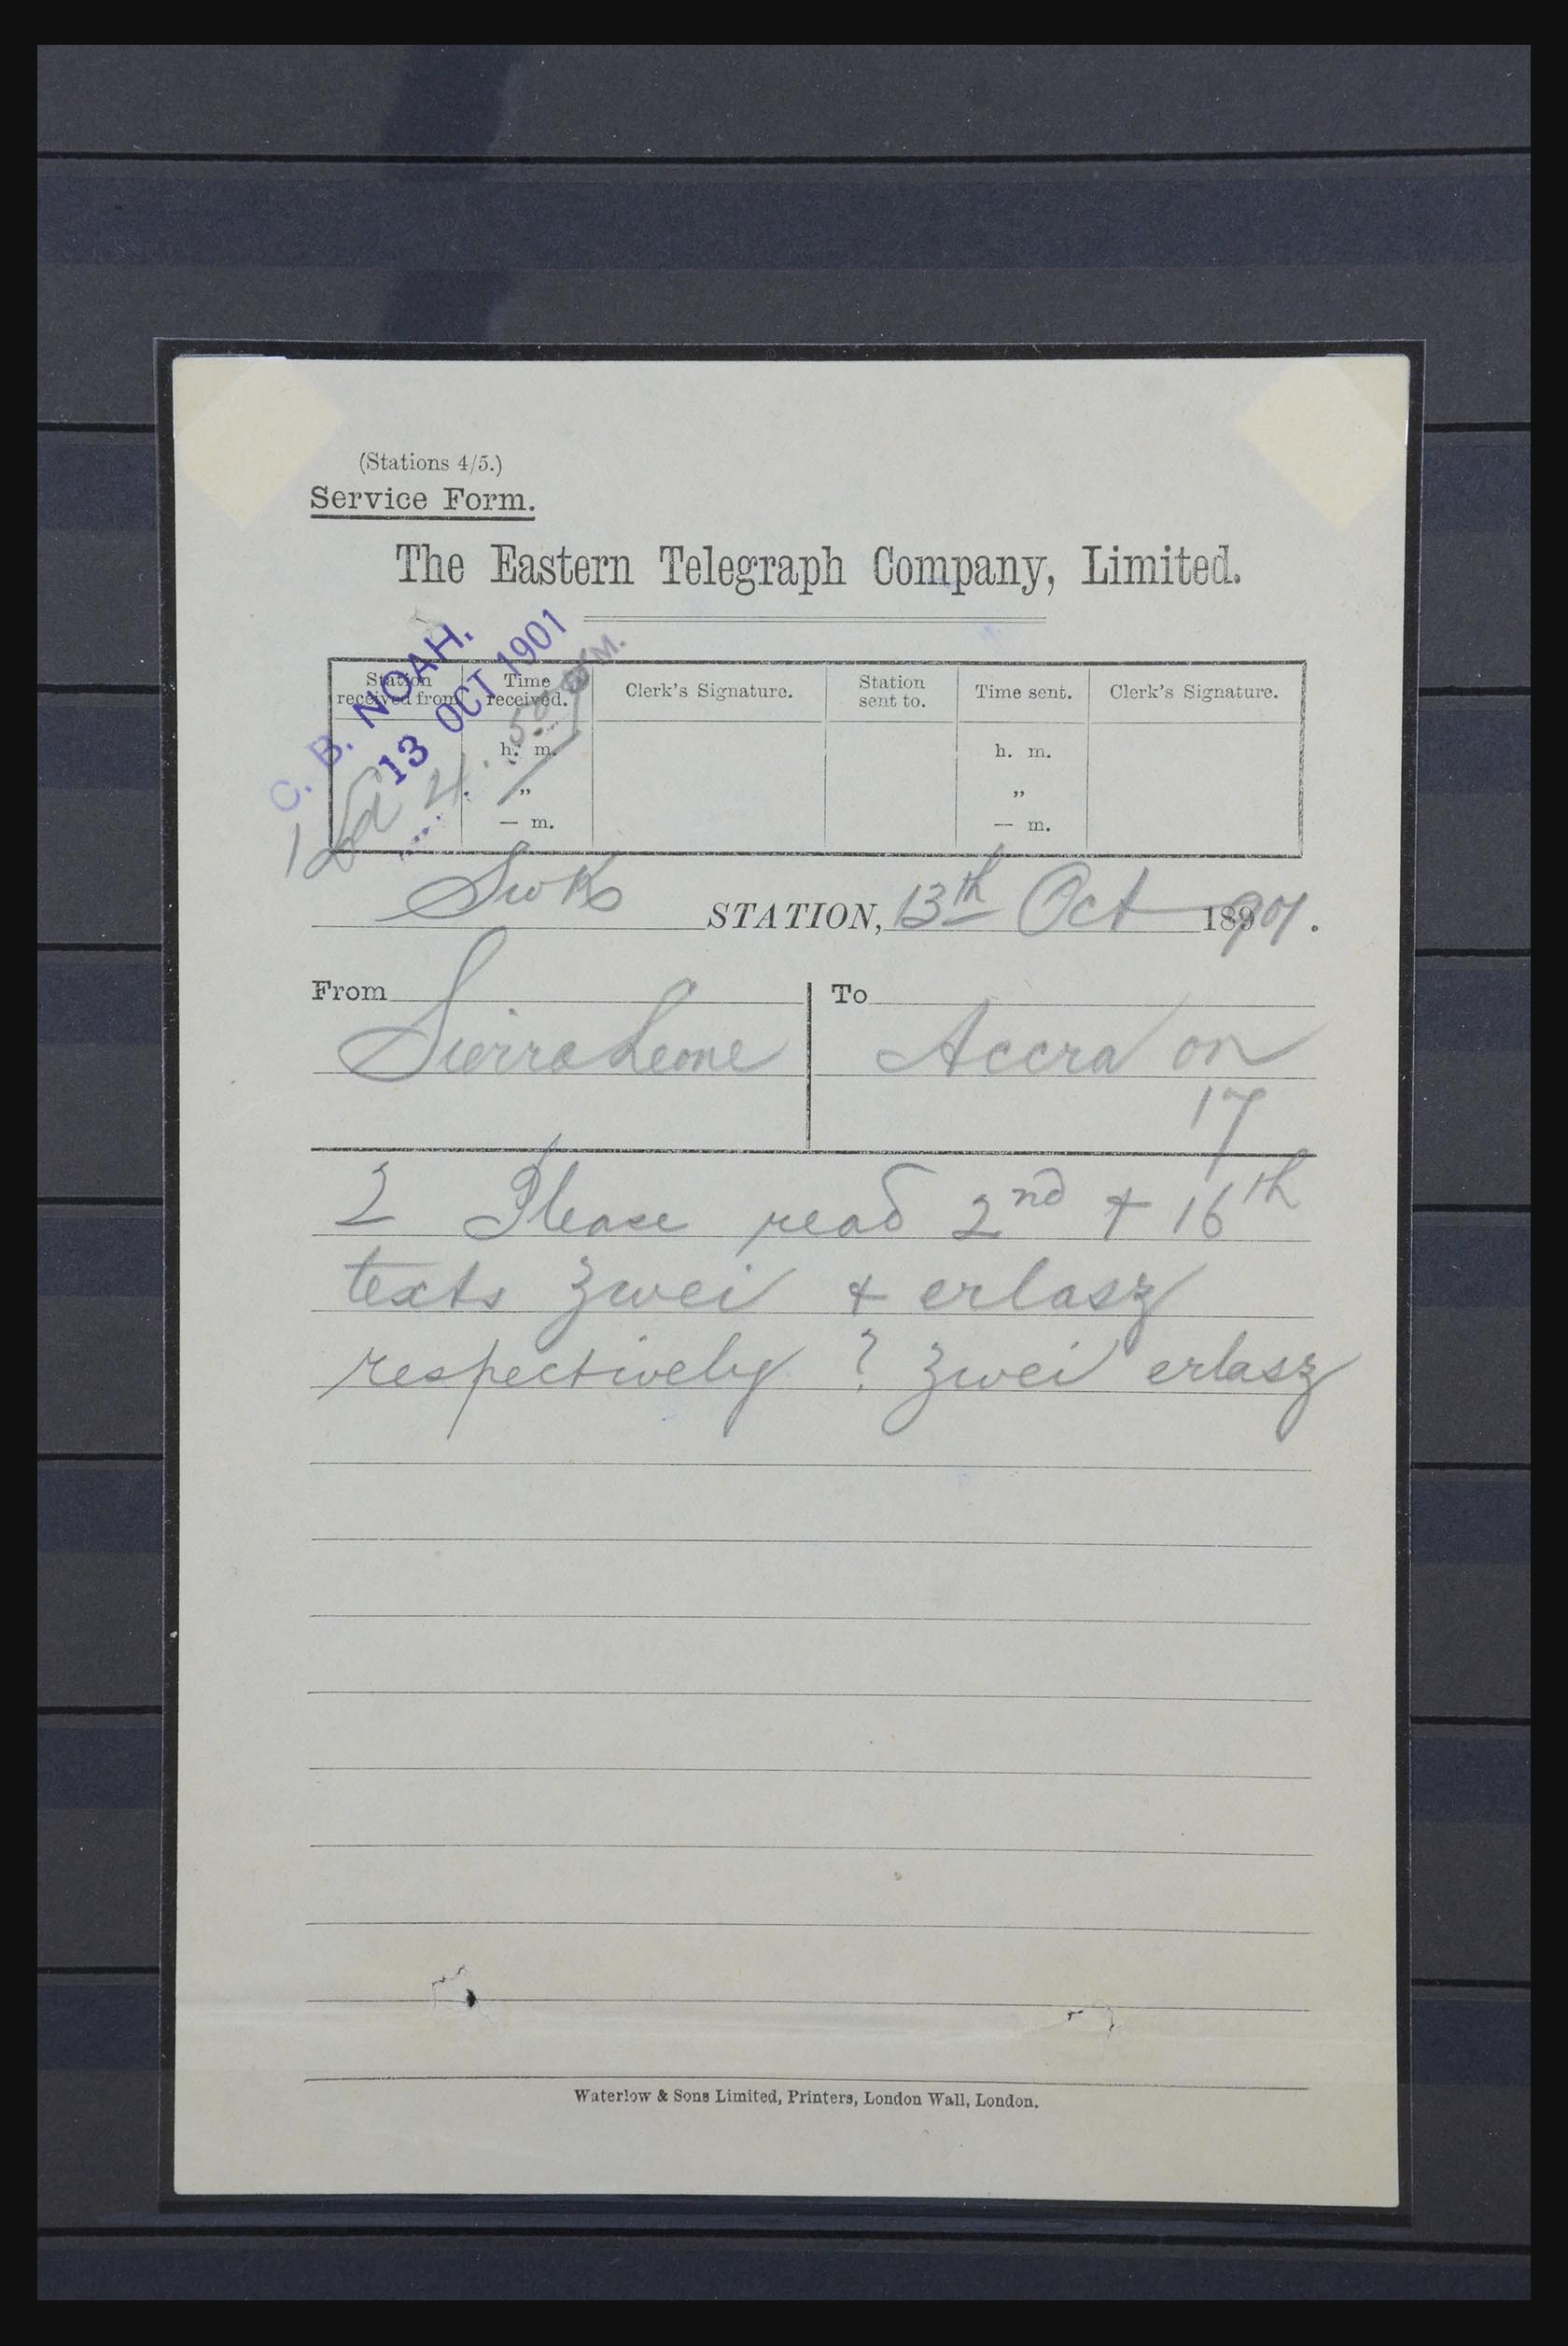 (Stations 4/5.)
Service Form.
The Eastern Telegraph Company, Limited.
C. B. NOAH.
13 OCT 1901
Station received from Time received. Clerk's Signature. Station sent to. Time sent. Clerk's Signature.
h. m. h. m.
„ „
— m. — m.
STATION, 13th Oct 1901.
From To
Sierra Leone Accra on
17
2 Please read 2nd + 16th
texts zwei + erlasz
respectively ? zwei erlasz
Waterlow & Sons Limited, Printers, London Wall, London.